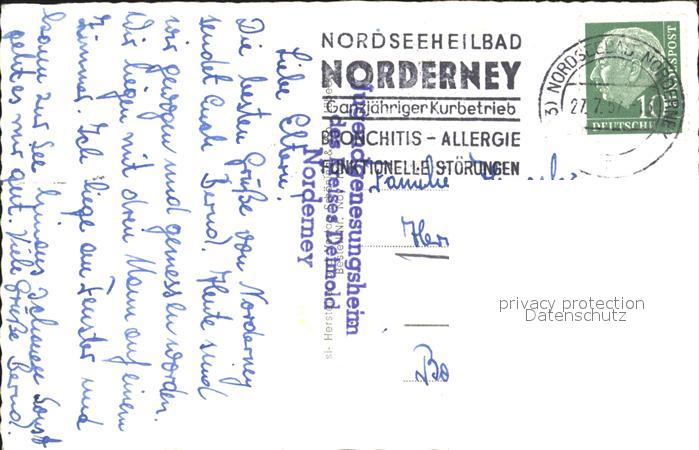 Liebe Eltern!
Die besten Grüße von Norderney
sendet Euch Bernd. Heute sind
wir gewogen und gemessen worden.
Wir liegen mit drei Mann auf einem
Zimmer. Ich liege am Fenster und
kann zur See hinaus schauen. Sonst
geht es mir gut. Viele Grüße Bernd.
NORDSEEHEILBAD
NORDERNEY
Ganzjähriger Kurbetrieb
BRONCHITIS – ALLERGIE
FUNKTIONELLE STÖRUNGEN
NORDSEEBAD NORDERNEY
27.7.5
10
DEUTSCHE BUNDESPOST
Jugendgenesungsheim
des Kreises Detmold
Norderney
Familie
Her
privacy protection
Datenschutz